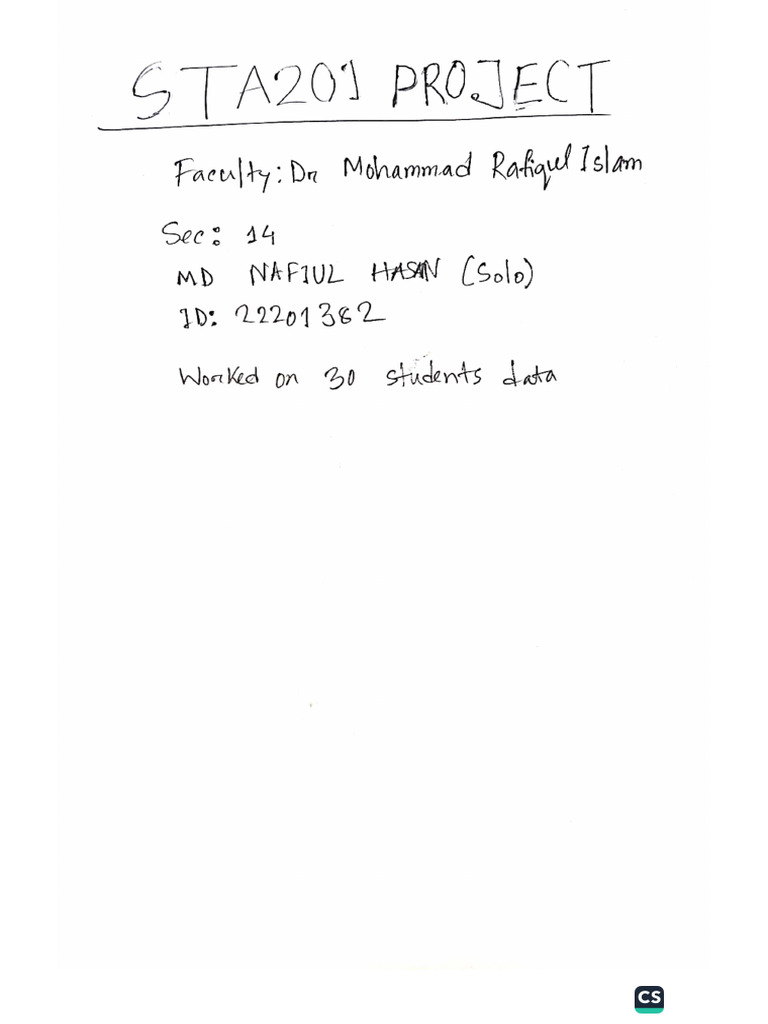 STA201 PROJECT
Faculty: Dr Mohammad Rafiqul Islam
Sec: 14
MD NAFIUL HASAN (Solo)
ID: 22201382
Worked on 30 students data
CS